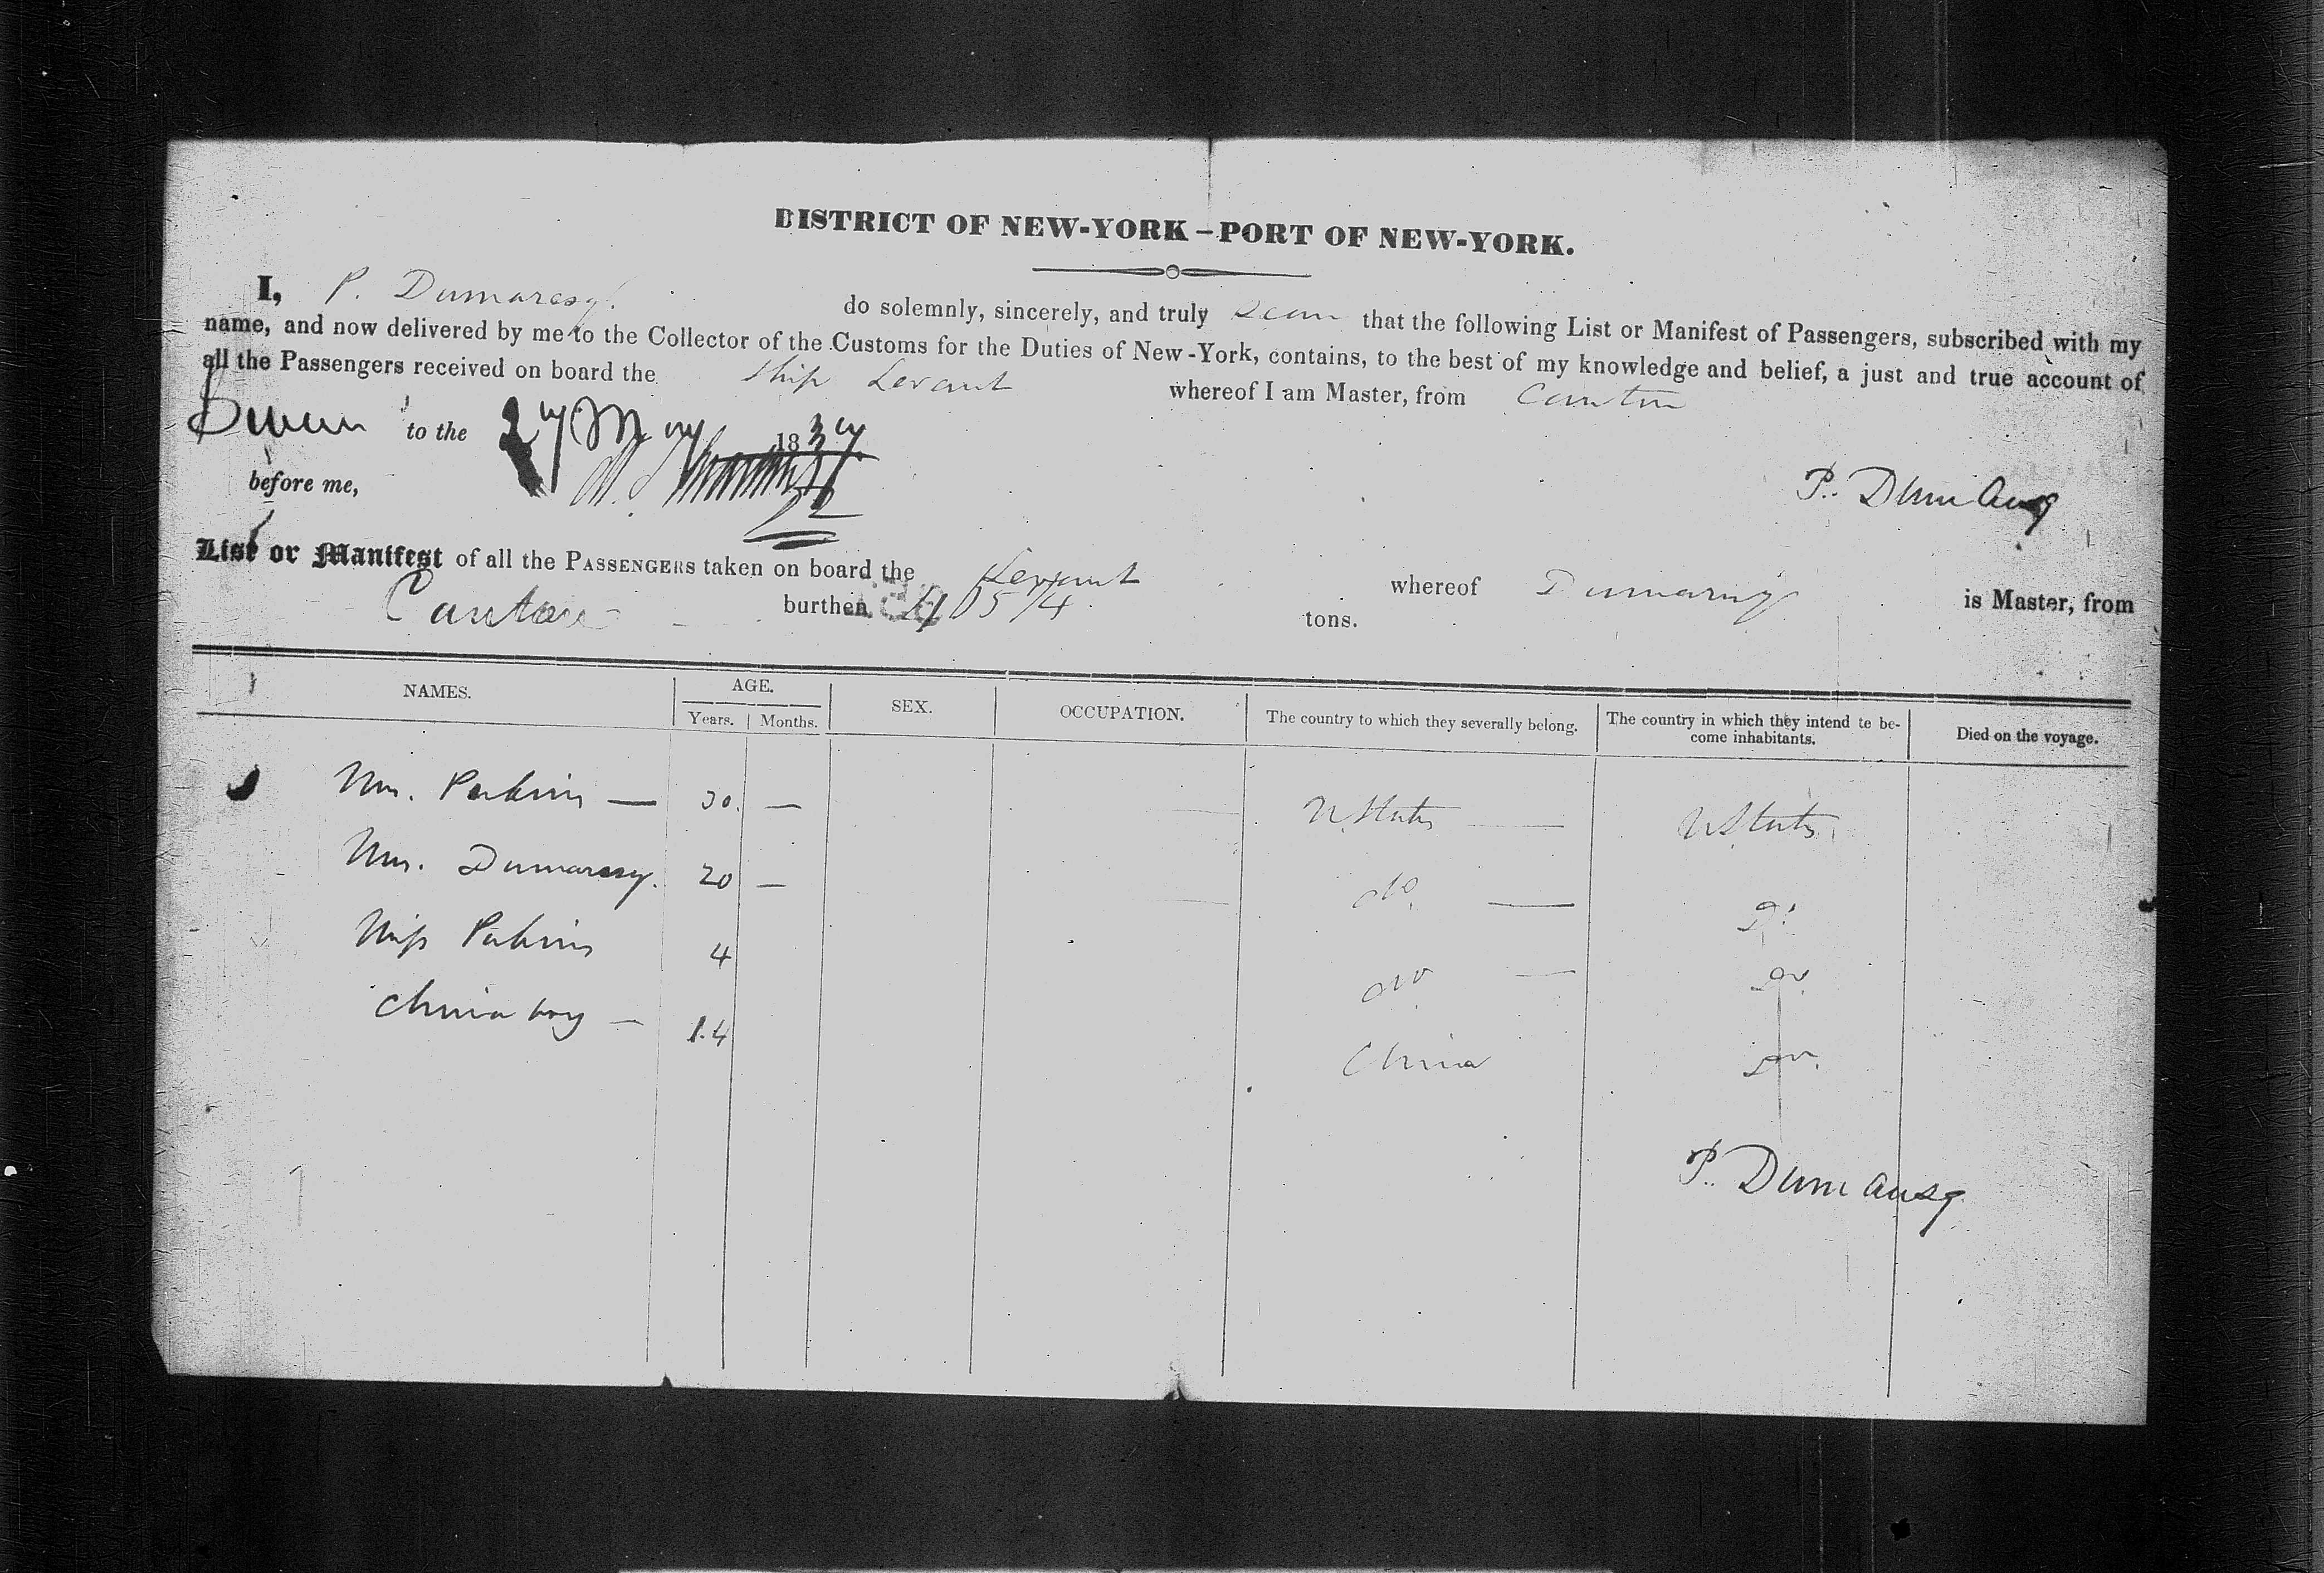 DISTRICT OF NEW-YORK – PORT OF NEW-YORK.
I, P. Dumaresq. do solemnly, sincerely, and truly swear that the following List or Manifest of Passengers, subscribed with my
name, and now delivered by me to the Collector of the Customs for the Duties of New-York, contains, to the best of my knowledge and belief, a just and true account of
all the Passengers received on board the Ship Levant whereof I am Master, from Canton
Sworn to the 27 May 1837
before me,
P. Dumaresq
List or Manifest of all the PASSENGERS taken on board the Levant whereof Dumaresq is Master, from
Canton burthen tons.
NAMES. AGE. SEX. OCCUPATION. The country to which they severally belong. The country in which they intend te be-
come inhabitants. Died on the voyage.
Years. Months.
Mrs. Perkins — 30. — U. States — U States
Mrs. Dumaresq. 20 — do. — Do
Miss Perkins 4 do — Do.
China boy — 14 China Do.
P. Dumaresq